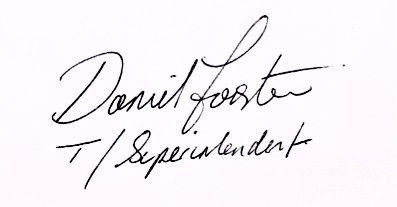 Daniel Foster
T/Superintendent